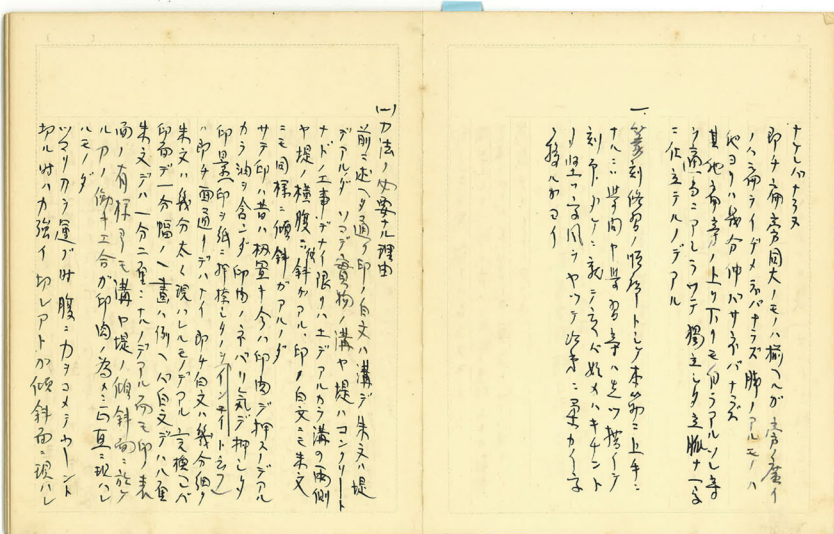 ナケレバナラヌ
即チ偏旁同大ノモノハ揃ヘルガ旁ノ広イ
ノハ偏ライヂメネバナラズ脚ノアルモノハ
他ヨリハ幾分伸バサネバナラズ
其他偏旁ノ上リ下リモ自ラアルソレ等
ヲ適当ニアシラツテ独立シタ立派ナ一字
ニ仕立テルノデアル
一、篆刻修習ノ順序トシテ本第ニ上手ニ
ナルニハ学問ヤ学習等ハ先ツ措イテ
刻ルダケニ就テ言ヘバ始メハキチント
シタ堅イ字風ヲヤツテ次第ニ柔カイ字
ヲ移ルガヨイ
(一)刀法ノ必要ナル理由
前ニ述ヘタ通リ印ノ白文ハ溝デ朱文ハ堤
デアルガ ソコデ実物ノ溝ヤ堤ハコンクリート
ナドノ工事デナイ限リハ土デアルカラ溝ノ両側
ヤ堤ノ横腹ニ傾斜ガアル 印ノ白文ニモ朱文
ニモ同様ニ傾斜ガアルノダ
サテ印ハ昔ハ極置キ今ハ印肉デ押スノデアル
カラ油ヲ含ンダ印肉ノネバリ気デ押シタ
印景(印ヲ紙ニ押捺シタノヲインエイト云フ)
ハ即チ面通リデハナイ 即チ白文ハ幾分細ク
朱文ハ幾分太ク現ハレルモノデアル 言換レバ
印面デ一分幅ノ一画ハ例ヘバ白文デハ八厘
朱文デハ一分二厘ニナルノデアル 而モ印ノ表
面ノ有様デモ溝ヤ堤ノ傾斜面ニ於ケ
ル刀ノ働キ工合ガ印肉ノ為メニ正直ニ現ハレ
ルモノダ
ツマリ刀ヲ運ブ時腹ニ力ヲコメテカーント
切ル時ハ力強イ切レアトガ傾斜面ニ現ハレ